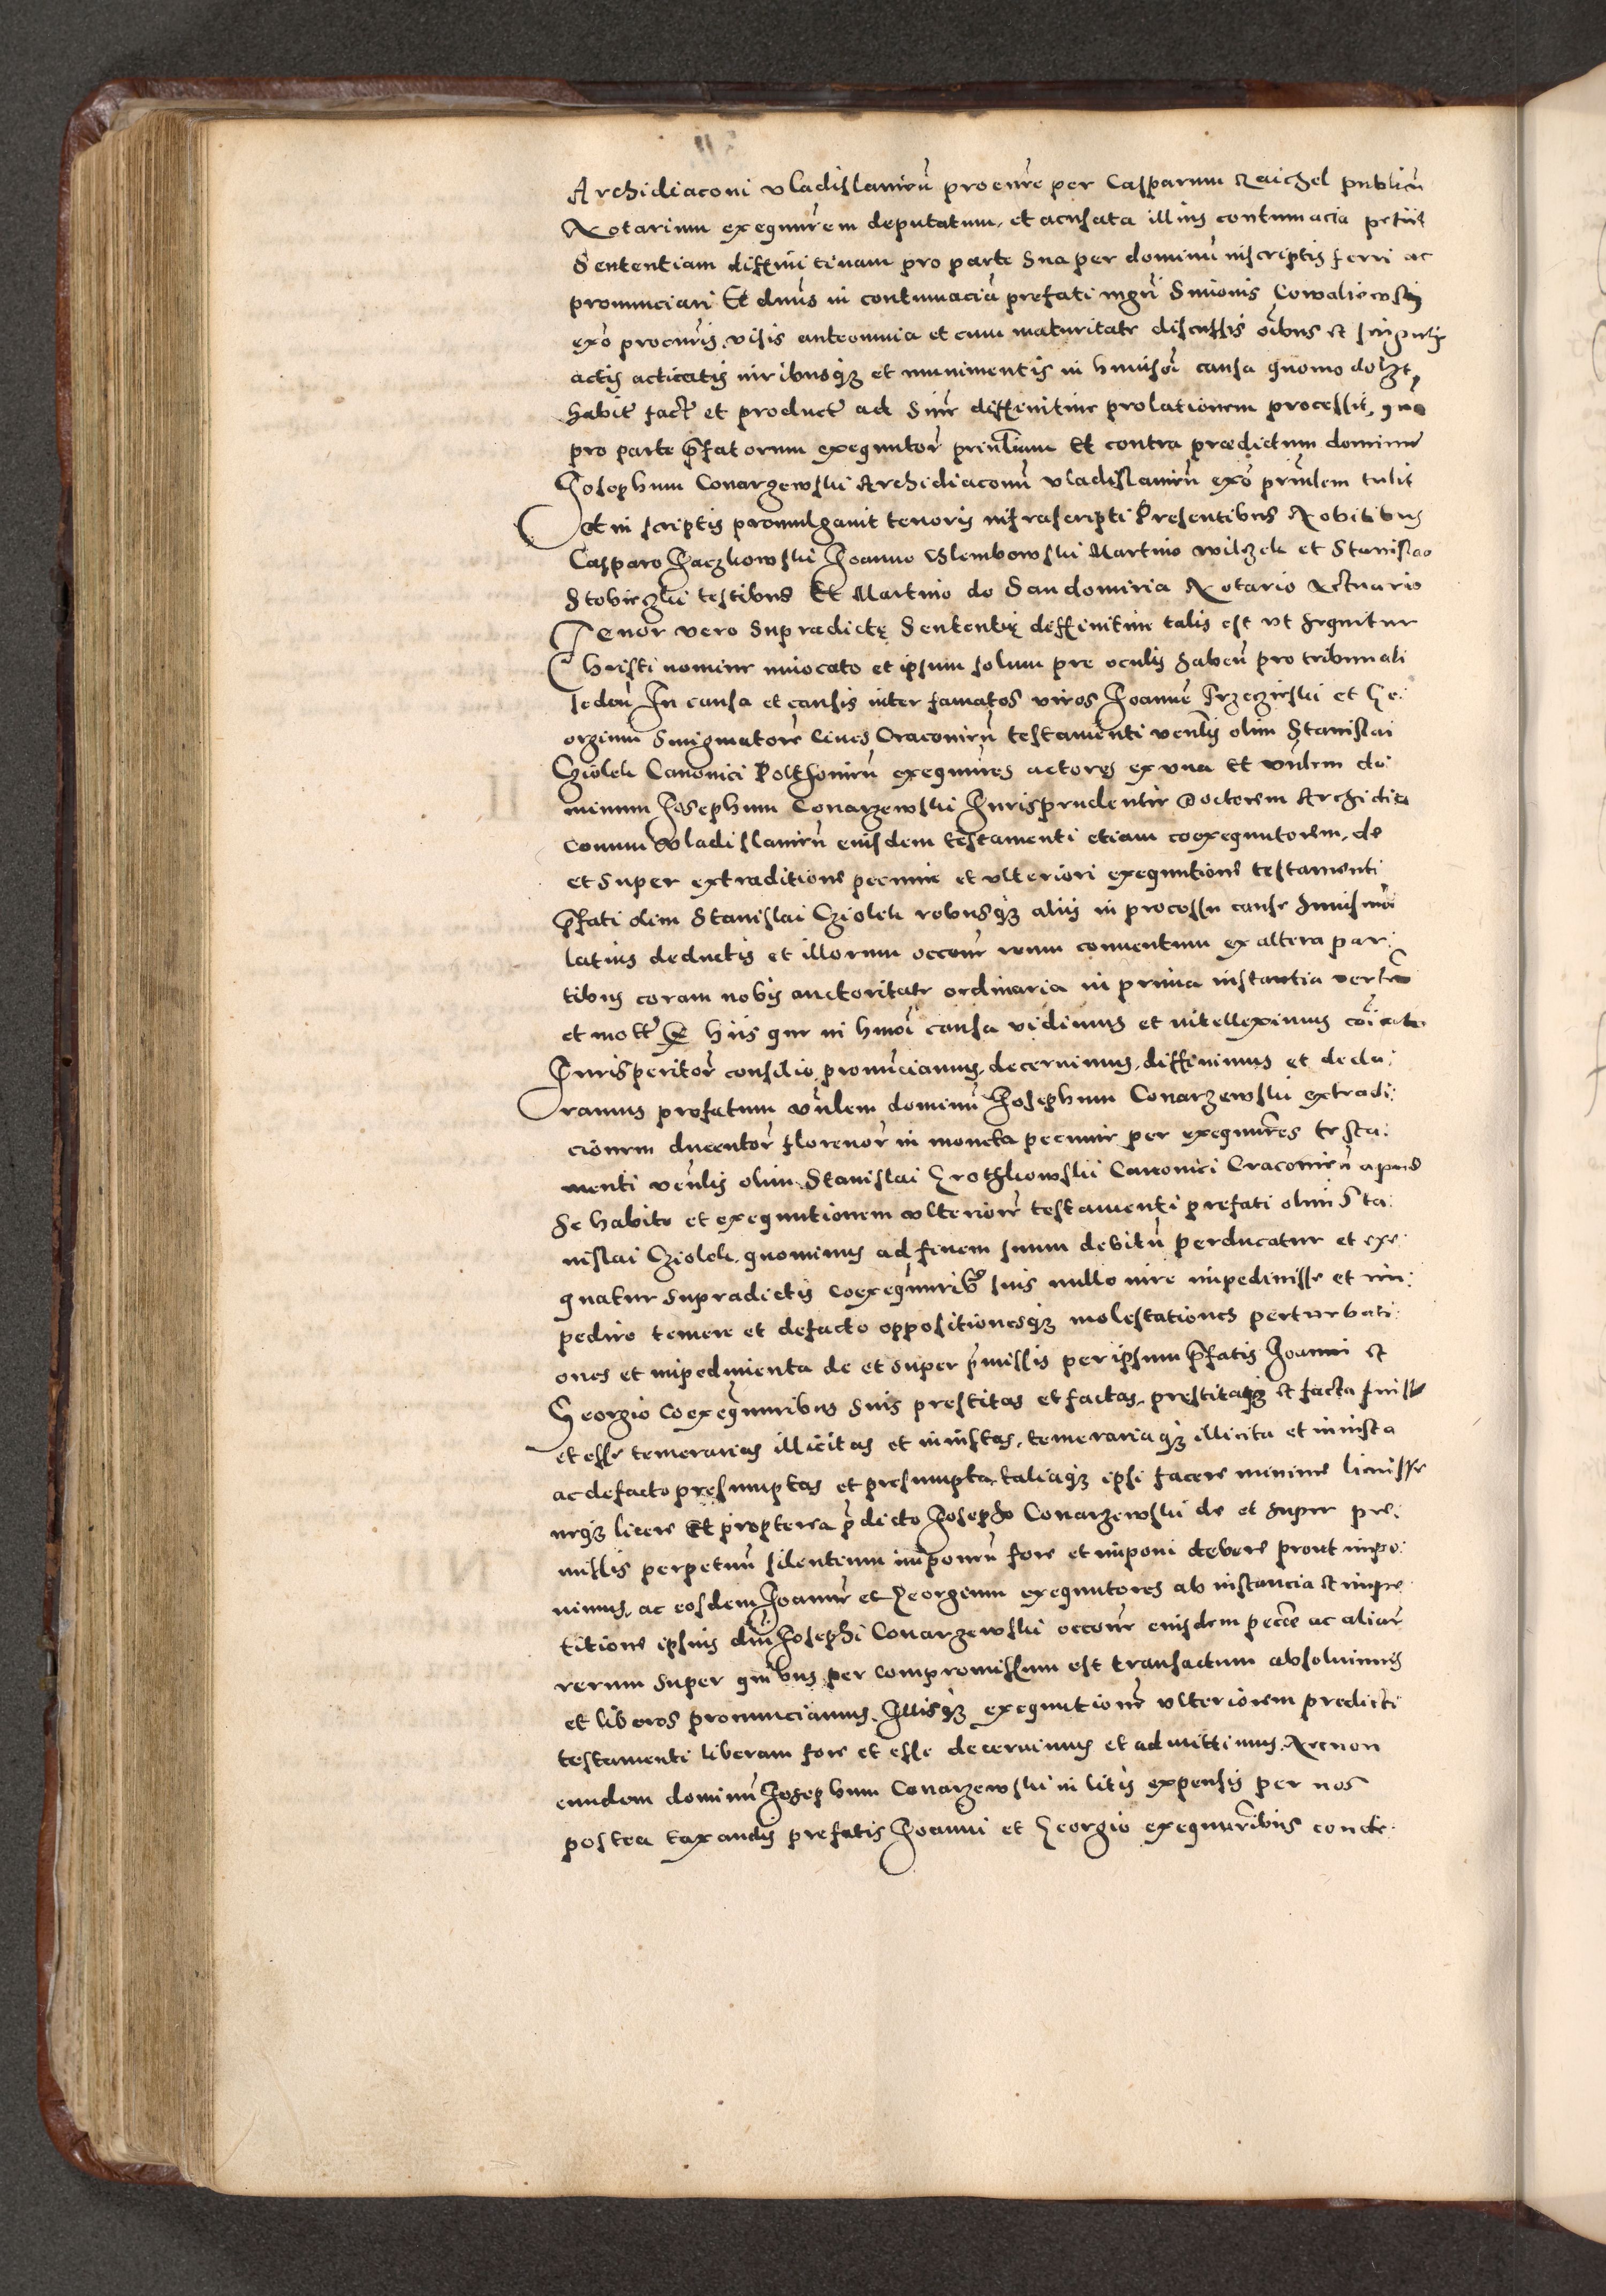 Archidiaconi vladislavień procurē per Casparum Raichel publicū
Notarium exequutorem deputatum, et acusata illius contumacia petiit
Sententiam diffinitivam pro parte Sua per dominū inscriptis ferri ac
pronunciari Et dnūs in contumaciā prefati mgrī Simonis Cowaliewski
ex͠o procurīs visis anteomnia et cum maturitate discussis oībus et singulis
actis acticatis iuribusq̧ et munimentis in huiusm̄oi causa quomodolz̄t
habit̄ fact̄ et product̄ ad Sniē diffinitive prolationem processit, quā
pro parte p̄fatorum exequutor̄ Et contra praedictum dominū
Josephum Conarzewski Archidiaconū vladislavień ex͠o prinlem tulit
et in scriptis promulgavit tenoris infrascripti Presentibus Nobilibus
Casparo Jaczkowski Joanne Glembowski Martino wilczek et Stanislao
Stobieczki testibus Et Martino de Sandomiria Notario Actuario
Tenor vero Supradictę Sententię diffinitive talis est vt sequitur
Christi nomine invocato et ipsum solum pre oculis habeń pro tribunali
sedeń In causa et causis inter famatos viros Joannē Trzeczieski et Ge:
orgium Smigmatorē Cives Cracovień testamenti venlis olim Stanislai
Cziolek Canonici Polthovień exequutores actores ex vna Et vnlem do:
minum Josephum Conarzewski Jurisprudentie Doctorem Archidia
conum wladislavień eiusdem testamenti etiam coexequutorem, de
et Super extraditione pecunie et vlteriori exequutione testamenti
p̄fati olim Stanislai Cziolek rebusq̧ aliis in processu cause huiusmōi
latius deductis et illorum occōne reum conventum ex altera par:
tibus coram nobis auctoritate ordinaria in prima instantia verteń
et mot̄ Ex hiis que in hmōi causa vidimus et intelleximus cōicato
Jurisperitor̄ consilio pronunciamus, decernimus, diffinimus et decla:
ramus prefatum vnlem dominū Josephum Conarzewski extradi:
cionem ducentor̄ florenor̄ in moneta pecunie per exequutores testa:
menti venlis olim Stanislai Grothkowskii Canonici Cracovień apud
Se habite et exequutionem vlteriorē testamenti prefati olim Sta:
nislai Cziolek quominus ad finem suum debitū perducatur et exe:
quatur Supradictis coexequutoribꝰ suis nullo iure impedivisse et im:
pedire temere et defacto oppositionesq̧ molestationes perturbati:
ones et impedimenta de et super p̄missis per ipsum p̄fatis Joanni et
Georgio coexequutoribus Suis prestitas et factas, prestitaq̧ et facta fuisse
et esse temerarias illicitas et iniustas, temerariaq̧ illicita et iniusta
ac defacto presumptas et presumpta, taliaq̧ ipsi facere minime licuisse
neq̧ licere Et propterea p̄dicto Josepho Conarzewski de et super pre:
missis perpetuū silentium imponeń fore et imponi debere prout impo:
nimus, ac eosdem Joannē et Georgium exequutores ab instancia et impe:
titione ipsius dni Josephi Conarzewski occōne eiusdem pecūe ac aliar̄
rerum super quibus per compromissum est transactum absolvimus
et liberos pronunciamus, Illisq̧ exequutionē vlteriorem predicti
testamenti liberam fore et esse decernimus et admittimus, Necnon
eundem dominū Josephum Conarzewski in litis expensis per nos
postea taxandis prefatis Joanni et Georgio exequutoribus conde: